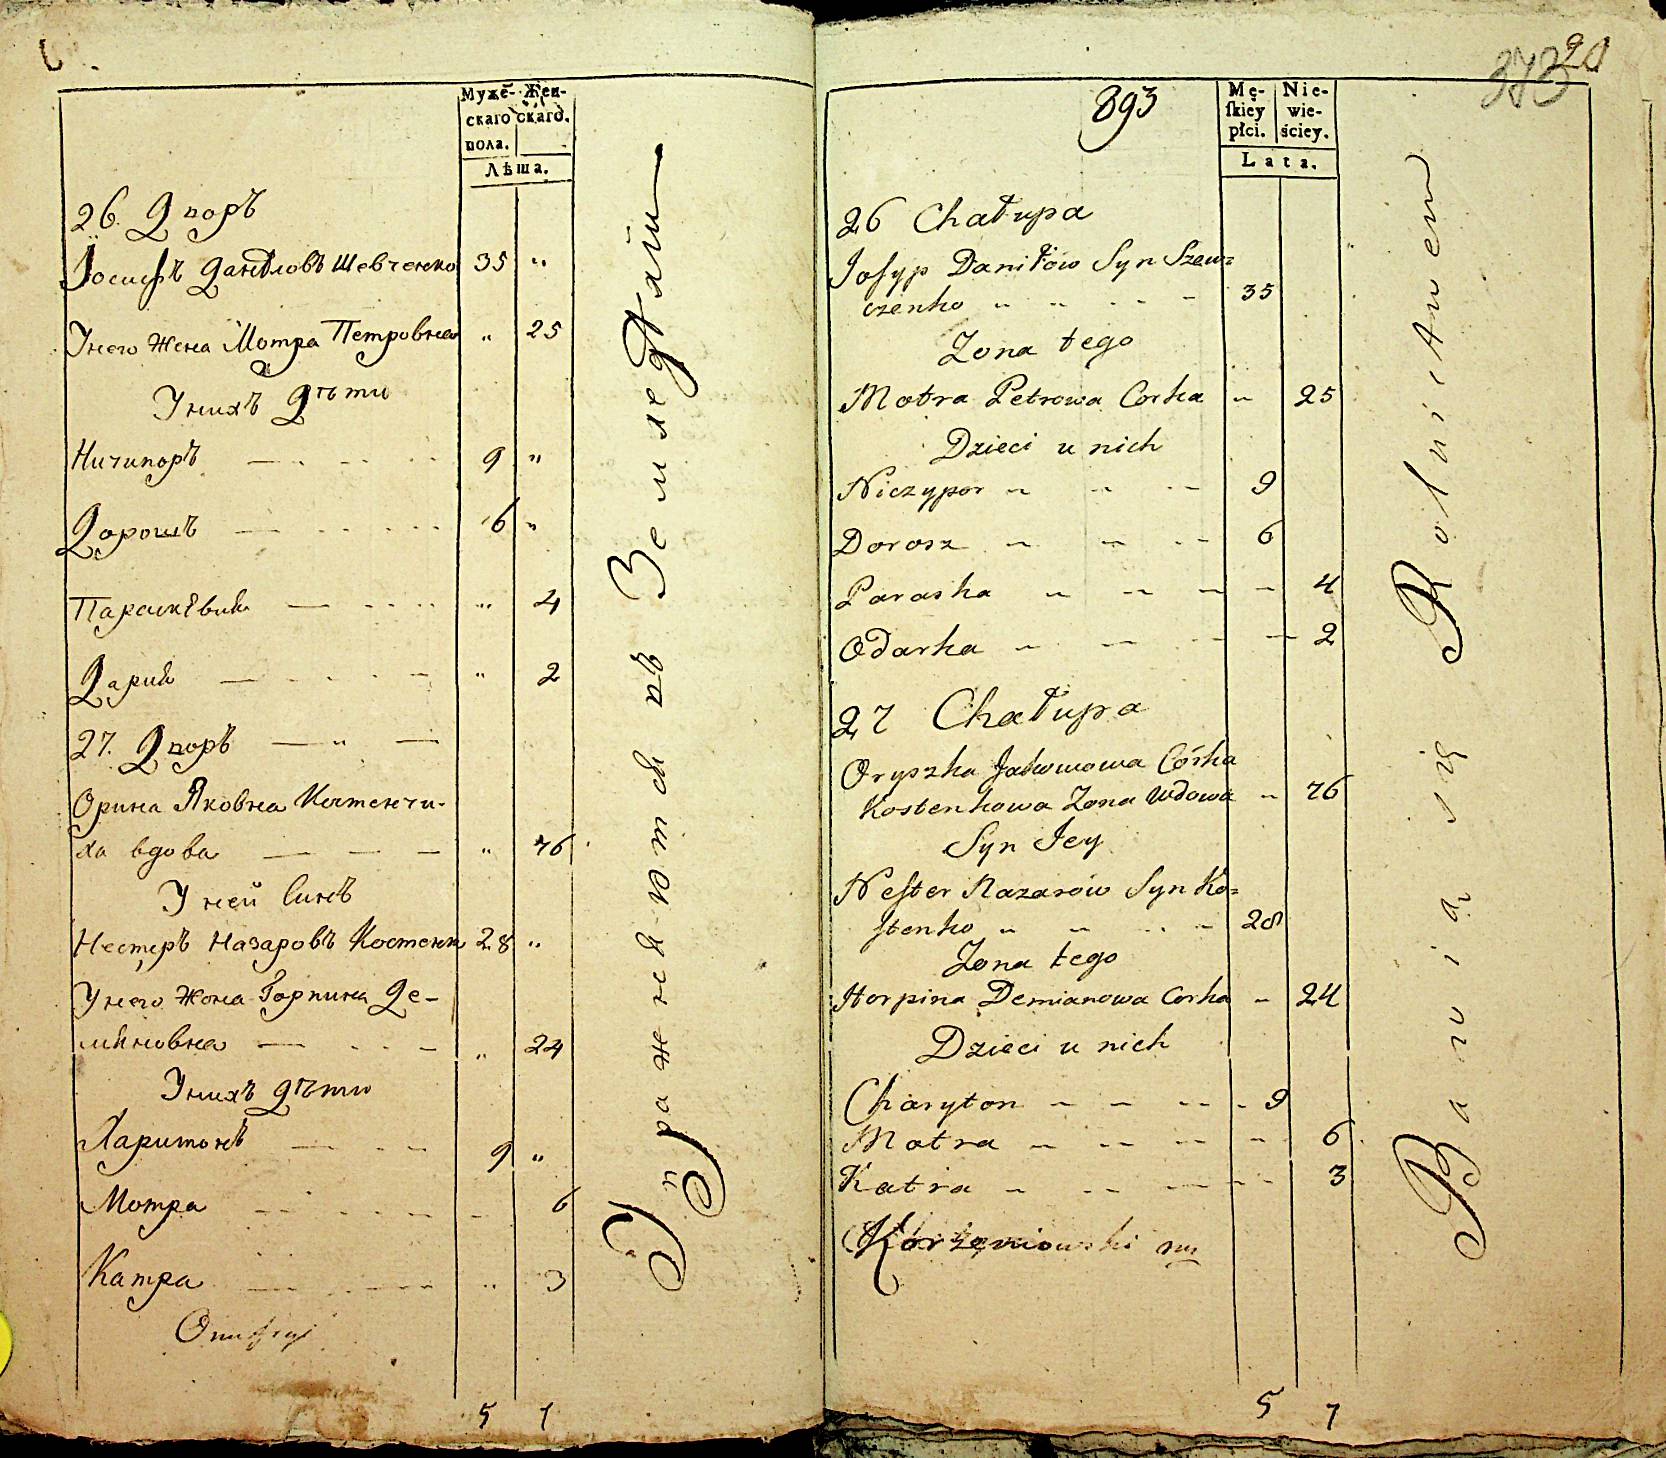 Мужеск- Жен-
скаго скаго.
пола.
Лѣта.
26. Дворъ
Іосифъ Даніиловъ Шевченко 35 "
У него жена Мотра Петровна " 25
У нихъ Дѣти
Ничипоръ 9 "
Дорошъ 6 "
Параскѣвія " 4
Дария " 2
27. Дворъ
Орина Яковна Костенчи-
ха вдова " 76
У ней Синъ
Нестеръ Назаровъ Костенко 28 "
У него жона Горпина Де-
мяновна " 24
У нихъ дѣти
Харитонъ 9 "
Мотра 6
Катра " 3
5 7
Упражняются въ Земледѣлїи
893
373
20
Mę- Nie-
skiey wie-
płci. ściey.
Lata.
26 Chałupa
Josyp Daniłów Syn Szew=
czenko 35
Zona tego
Motra Petrowa Corka " 25
Dzieci u nich
Niczypor 9
Dorosz 6
Paraska 4
Odarka 2
27 Chałupa
Oryszka Jakowowa Córka
Kostenkowa Zona Wdowa " 76
Syn Jey
Nester Nazarów Syn Ko=
stenko 28
Zona tego
Horpina Demianowa Corka 24
Dzieci u nich
Charyton 9
Motra 6
Katra 3
Korzeniowski
5 7
Bawią się Rolnictwem